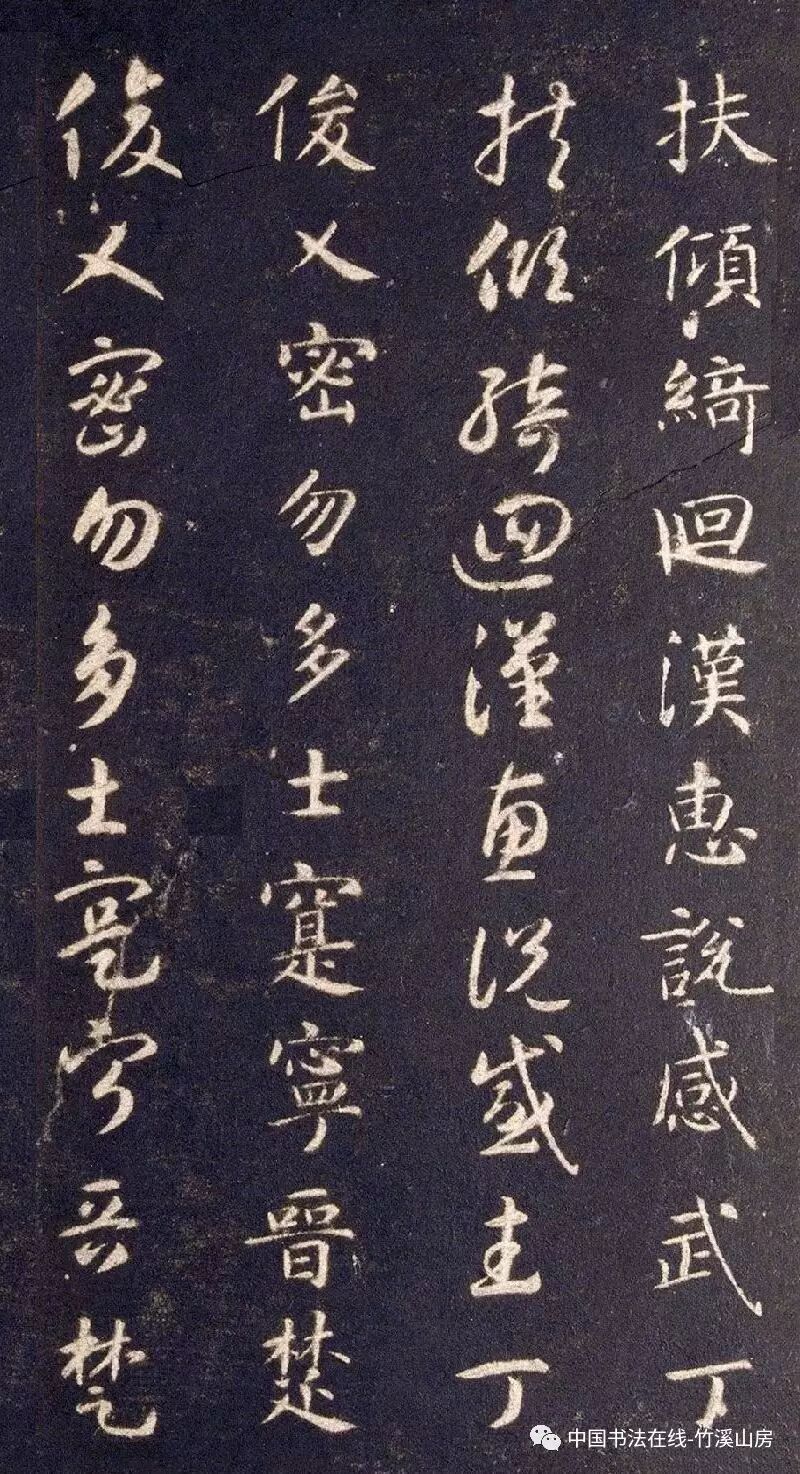 扶傾綺迴漢惠說感武丁
扶傾綺迴漢惠說感武丁
俊乂密勿多士寔寧晉楚
俊乂密勿多士寔寧晉楚
中国书法在线-竹溪山房